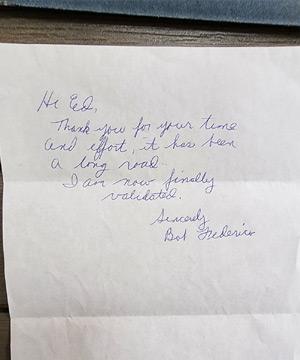 Hi Ed,
Thank you for your time
and effort, it has been
a long road.
I am now finally
validated.
Sincerely
Bob Federico